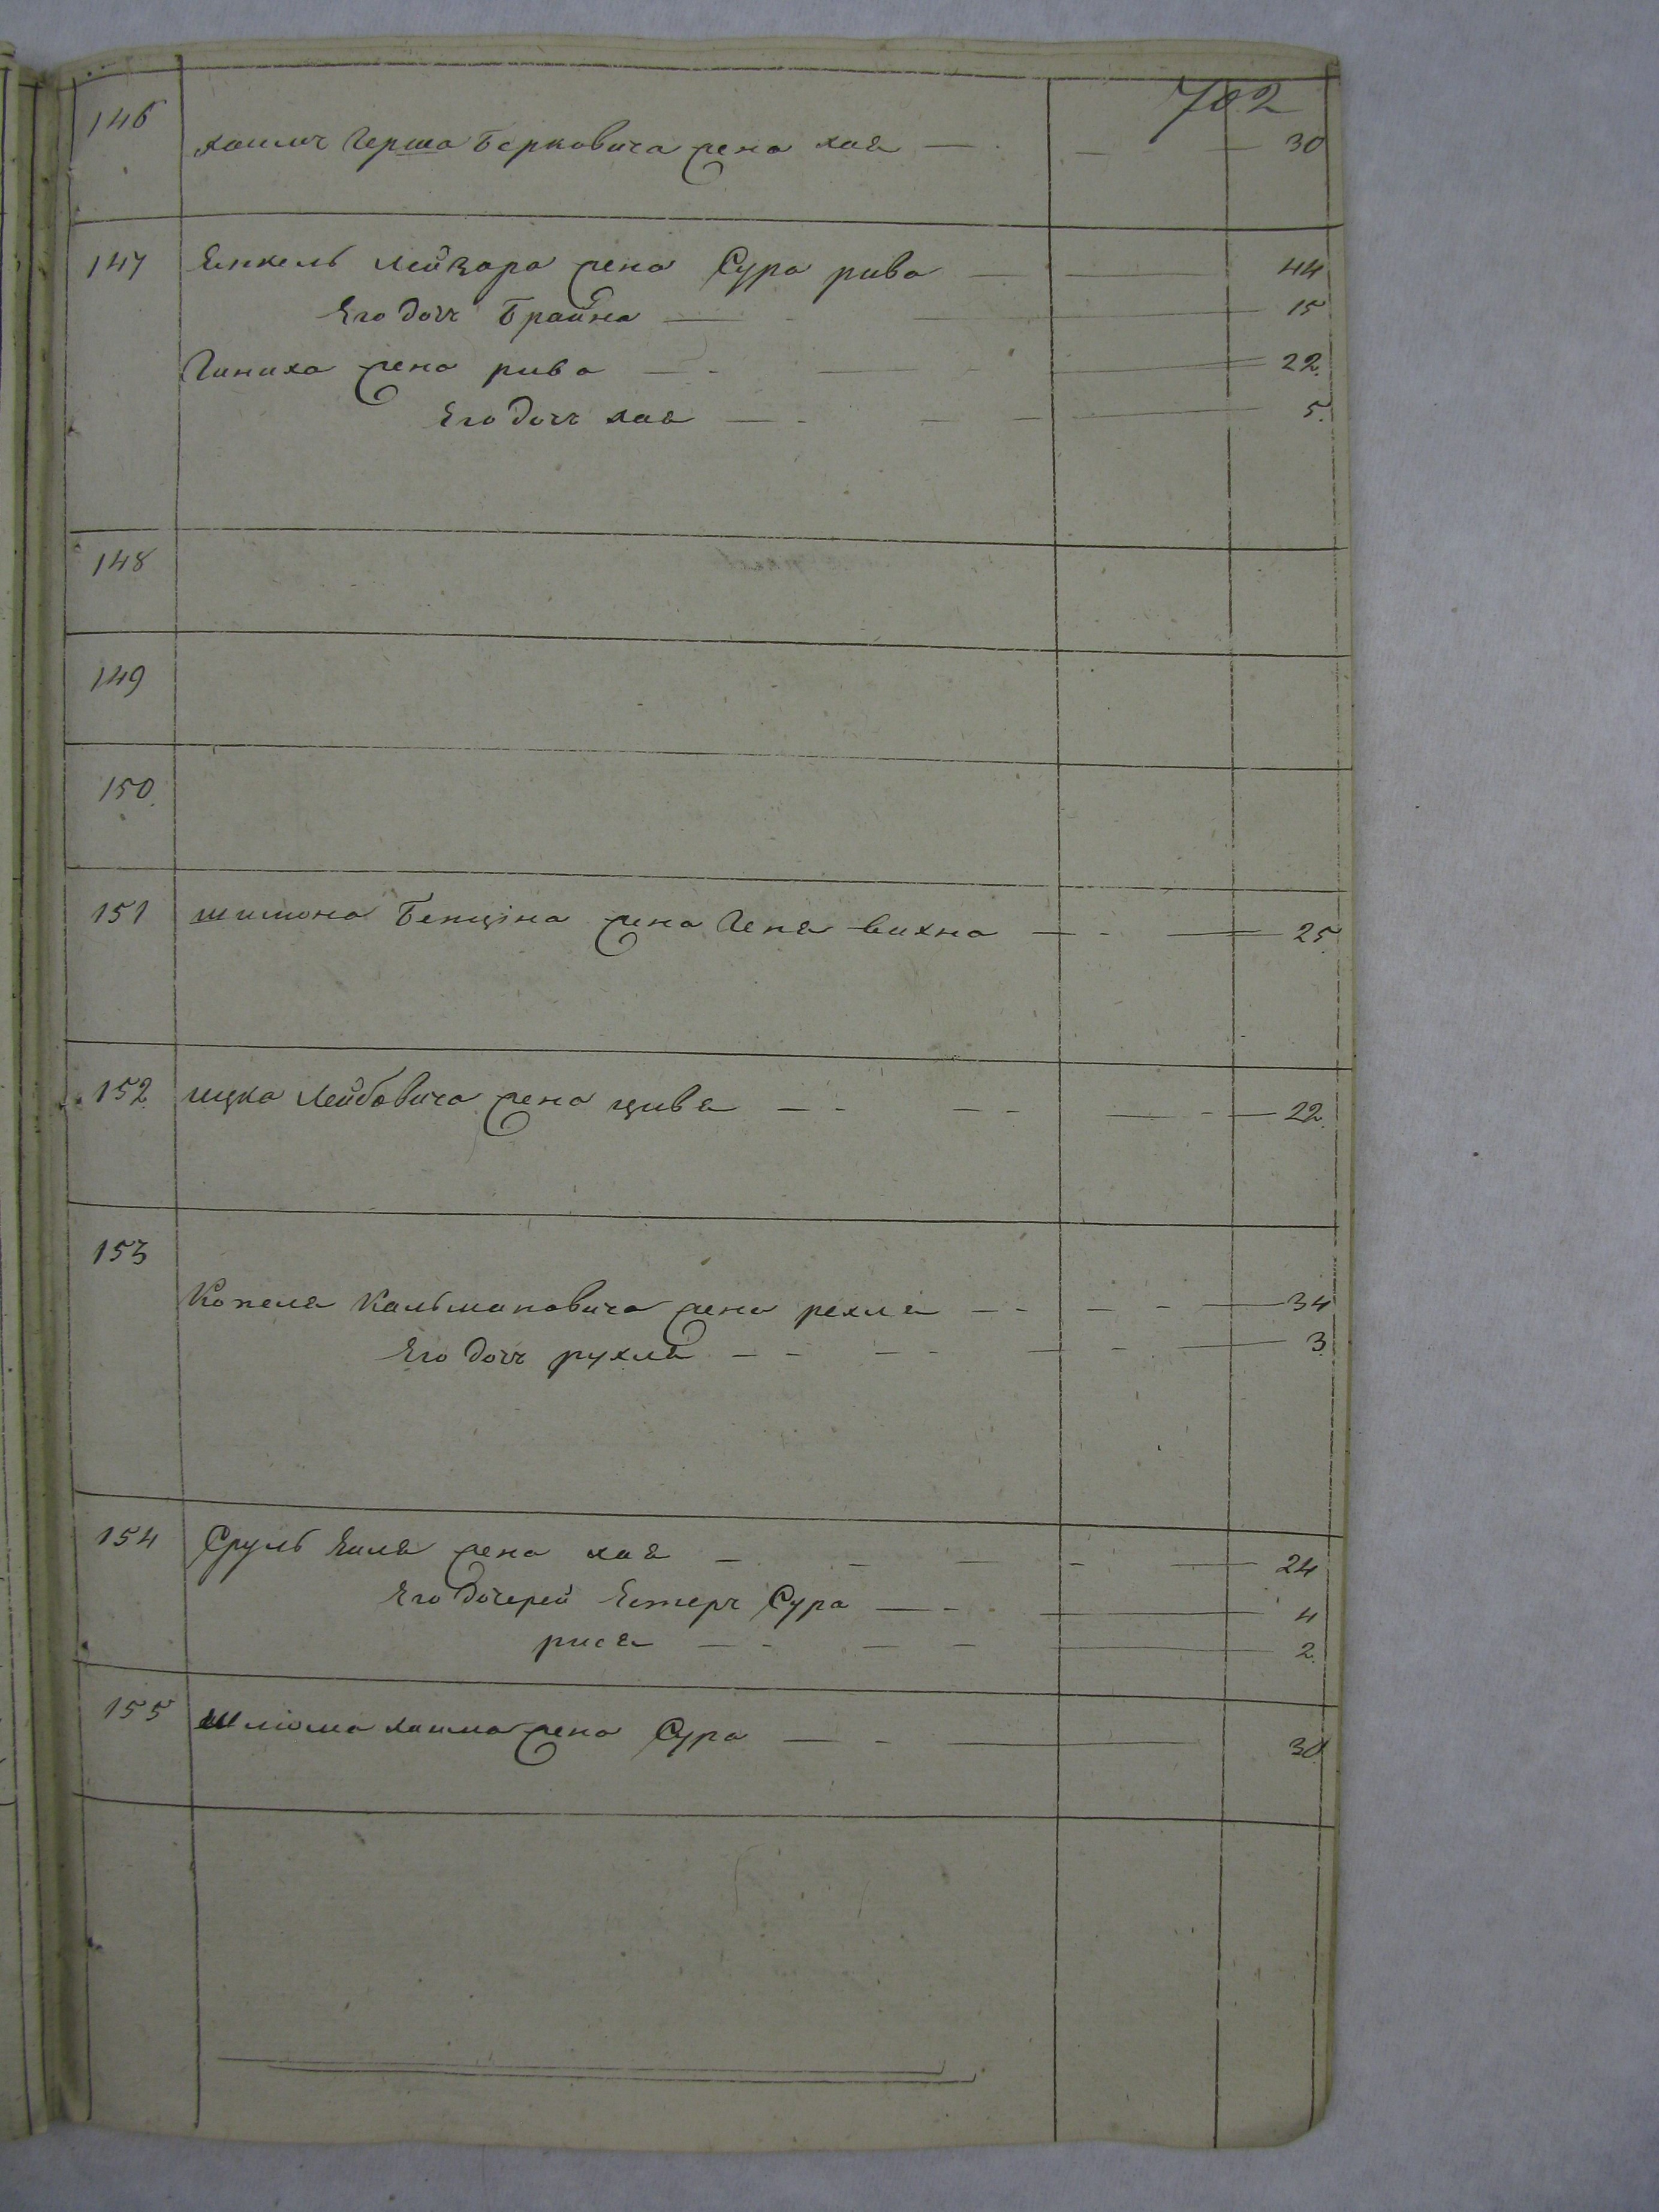 702
146 хаимъ Герша Берковича жена хая 30
147 Янкель Лейзара жена Сура рива 44
Его дочь Брайна 15
жена рива 22.
Его дочь хая 5.
148
149
150.
151 шимона Бенціна жена Геня вихна 25
152 ицка Лейбовича жена цивя 22.
153
Копеля Кальмановича жена рехля 34
Его дочь рухля 3
154 Сруль Хаиля жена хая 24
Его дочерей Естеръ Сура 4
рися 2.
155 Шліома жена Сура 30